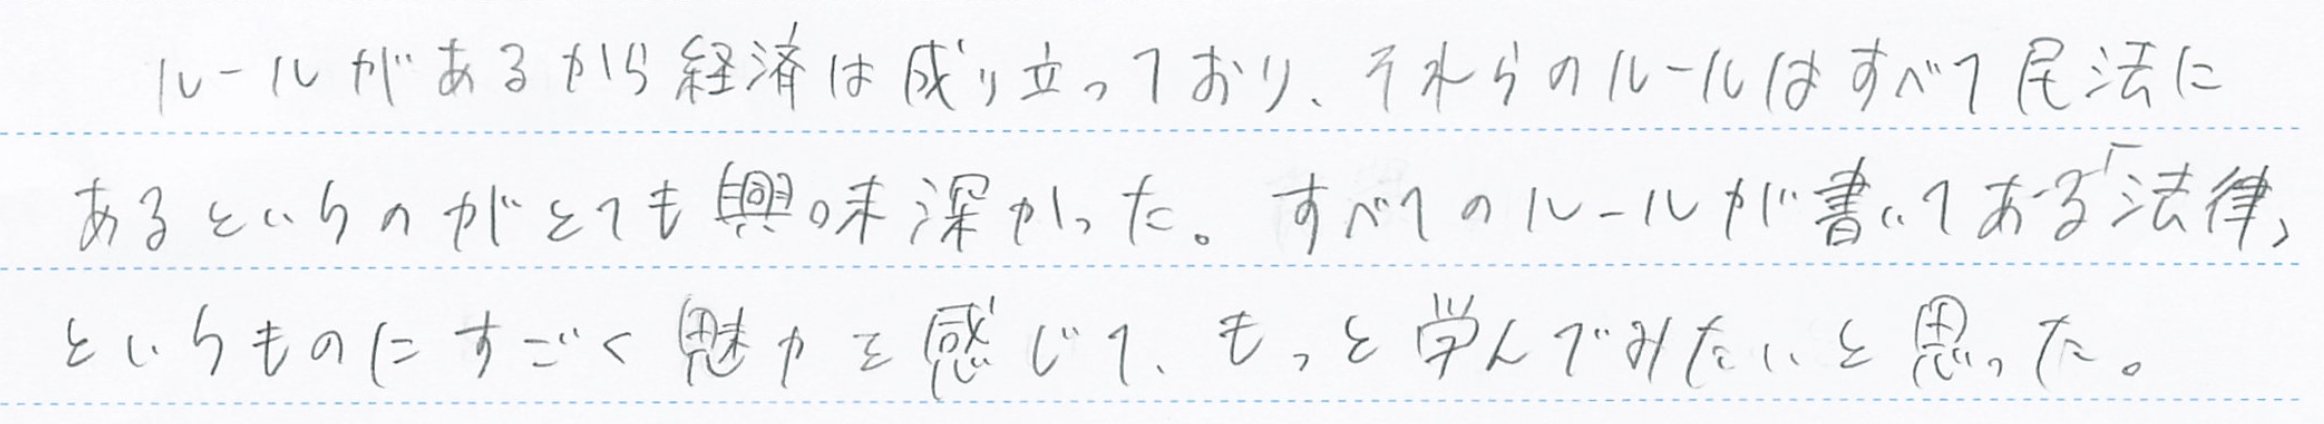 ルールがあるから経済は成り立っており、それらのルールはすべて民法に
あるというのがとても興味深かった。すべてのルールが書いてある「法律」
というものにすごく魅力を感じて、もっと学んでみたいと思った。